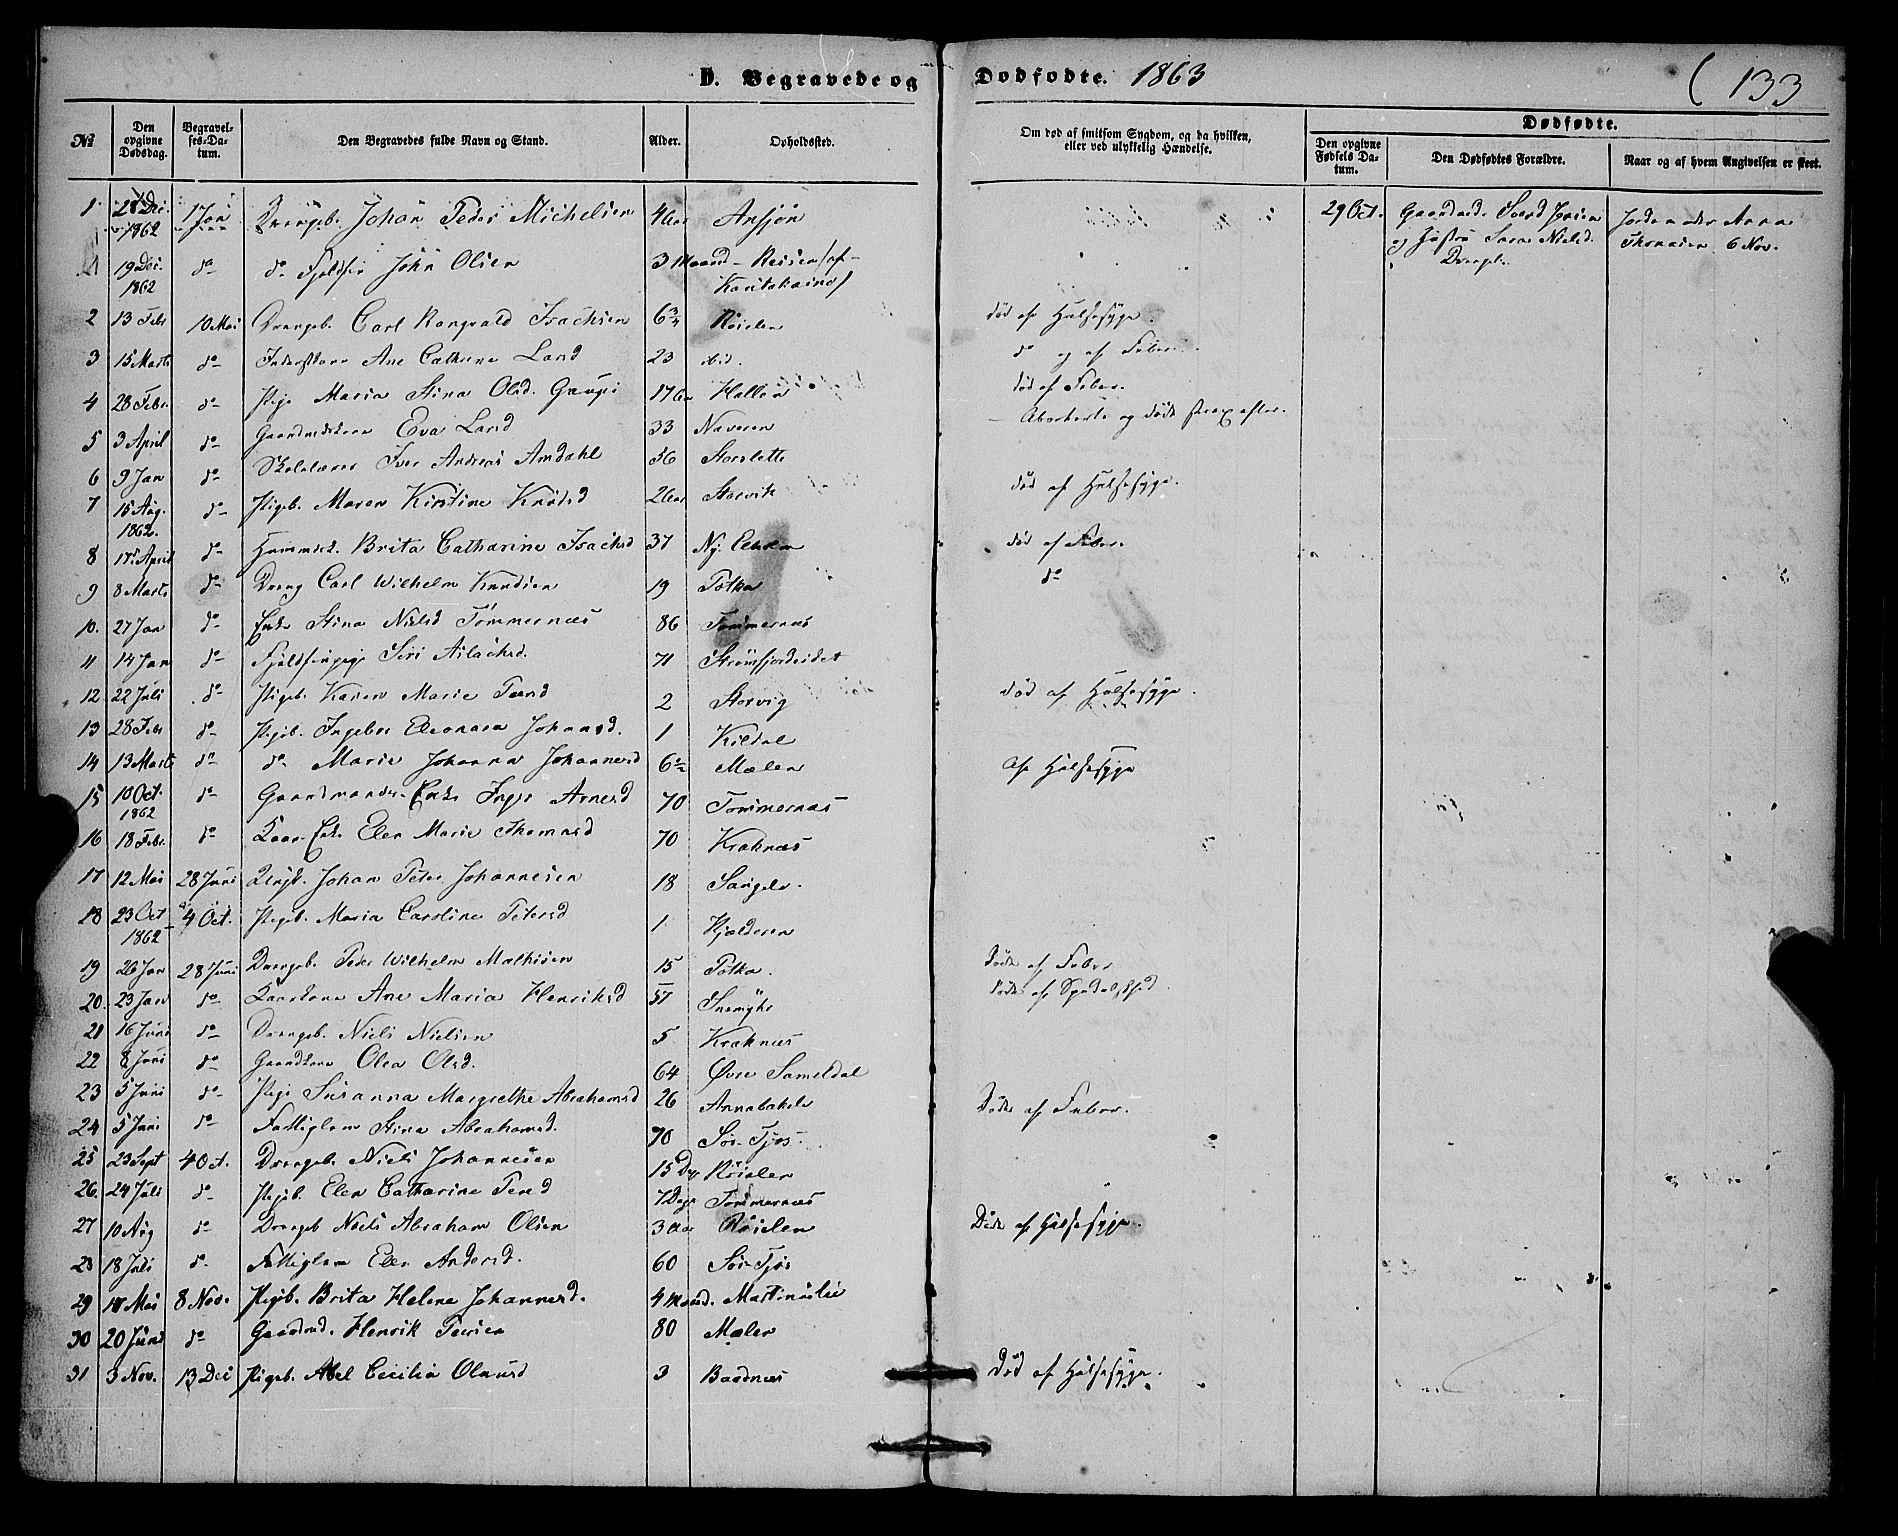 D. Begravede og Dødfødte. 1863 133
№ Den opgivne Dødsdag. Begravelses-Datum. Den Begravedes fulde Navn og Stand. Alder. Opholdssted. Om død af smitsom Sygdom, og da hvilken, eller ved ulykkelig Hændelse. Dødfødte. Den opgivne Fødsels Datum. Den Dødfødtes Forældre. Naar og af hvem Angivelsen er skeet.
1 28 Dec. 1862 1 Jan Drengeb. Johan Peder Michelsen 4 Aar 29 Oct. og Hustru Sara Nielsd. Drengeb. Anna Thomasen 6 Nov.
19 Dec. 1862 do do Fjeldfin John Olsen 3 Maaned
2 13 Febr 10 Mai Drengeb. Carl Rongvald Isachsen 6 3/4 Røielen død af Halsesyge.
3 15 Marts do Inderstkone Ane Cathrine Larsd 23 ibid. do og af Feber.
4 28 Febr. do Pige Maria Stina Olsd. 17 Aar død af Feber.
5 3 April do Gaardmdskone Eva Larsd 33 Naveren Aborterte og døde strax efter.
6 9 Jan do Skolelærer Iver Andreas Amdahl 36 Storslette
7 15 Aug. 1862. do Pigeb. Maren Kirstine Knudsd 2 Aar Storvik død af Halsesyge.
8 17 April do Huusmdsk. Brita Catharine Isachsd 37 død af Feber.
9 8 Marts do Dreng Carl Wilhelm Knudsen 19 Potka do
10. 27 Jan do Enke Stina Nielsd Tømmernæs 86 Tømmernæs
11 14 Jan do Fjeldfinpige Siri Aslachsd. 71 Strømfjordeidet
12 22 Juli do Pigeb. Karen Marie Peersd 2 Storvig død af Halsesyge.
13 28 Febr do Pigeb. Ingebor Eleonora Johansd. 1 Kildal
14 13 Marts do do Marie Johanna Johannesd 6 1/2 Mælen af Halsesyge
15 10 Oct. 1862 do Gaardmands-Enke Inger Arnesd 70 Tømmernæs
16 18 Febr. do Enke Elen Marie Thomasd 70 Kraknæs
17 12 Mai 28 Juni Johan Peter Johannesen 18
18 23 Oct 1862 4 Oct. Pigeb. Maria Caroline Petersd 1 Hjælderen
19 26 Jan 28 Juni Drengeb. Peder Wilhelm Mathisen 15 Potka. Døde af Feber
20. 23 Jan do Ane Maria Henriksd 57 døde af Spedalskhed.
21 16 Juni do Drengeb. Niels Nielsen 5 Kraknæs
22 8 Juni do Gaardkone Olea Olsd. 64 Øvre Sameldal
23 5 Juni do Pige Susanna Margrethe Abrahamsd 26 Annabakele Døde af Feber.
24 5 Juni do Fattiglem Stina Abrahamsd. 70 Sør-Tjos.
25 23 Sept 4 Oct. Drengeb. Niels Johannesen 15 Dage Røielen
26. 24 Juli do Pigeb. Elen Catharine Peersd 7 Dage Tømmernæs
27 10 Aug do Drengeb Niels Abraham Olsen 3 Aar Røielen Døde af Halsesyge.
28 18 Juli do Fattiglem Elen Andersd. 60 Sør-Tjos
29 18 Mai 8 Nov. Pigeb. Brita Helene Johannesd. 4 Maaned.
30 20 Juni do Gaardmd. Henrik Peersen 80 Mælen
31 3 Nov. 13 Dec Pigeb. Abel Cecilia Olausd 3 Baadnæs Død af Halsesyge.